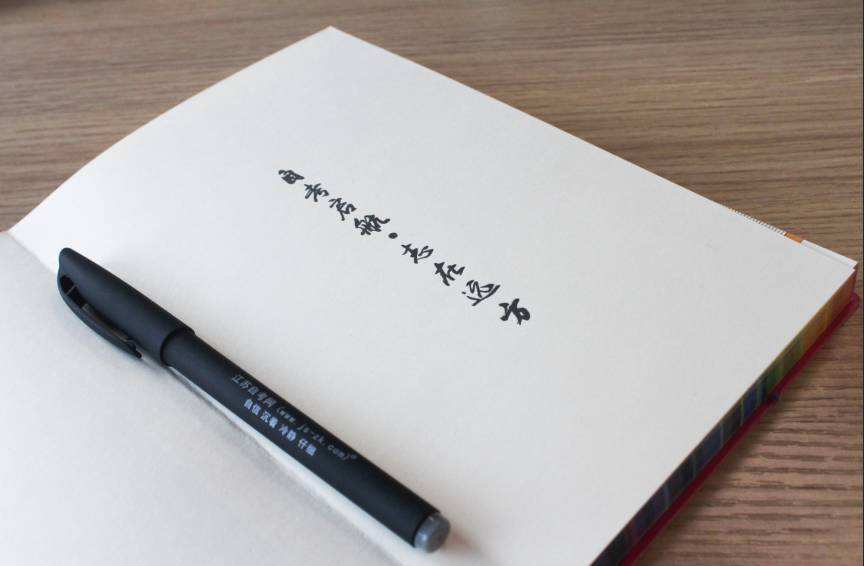 自考启航·志在远方
江苏自考网(www.js-zk.com)®
自信 沉着 冷静 仔细